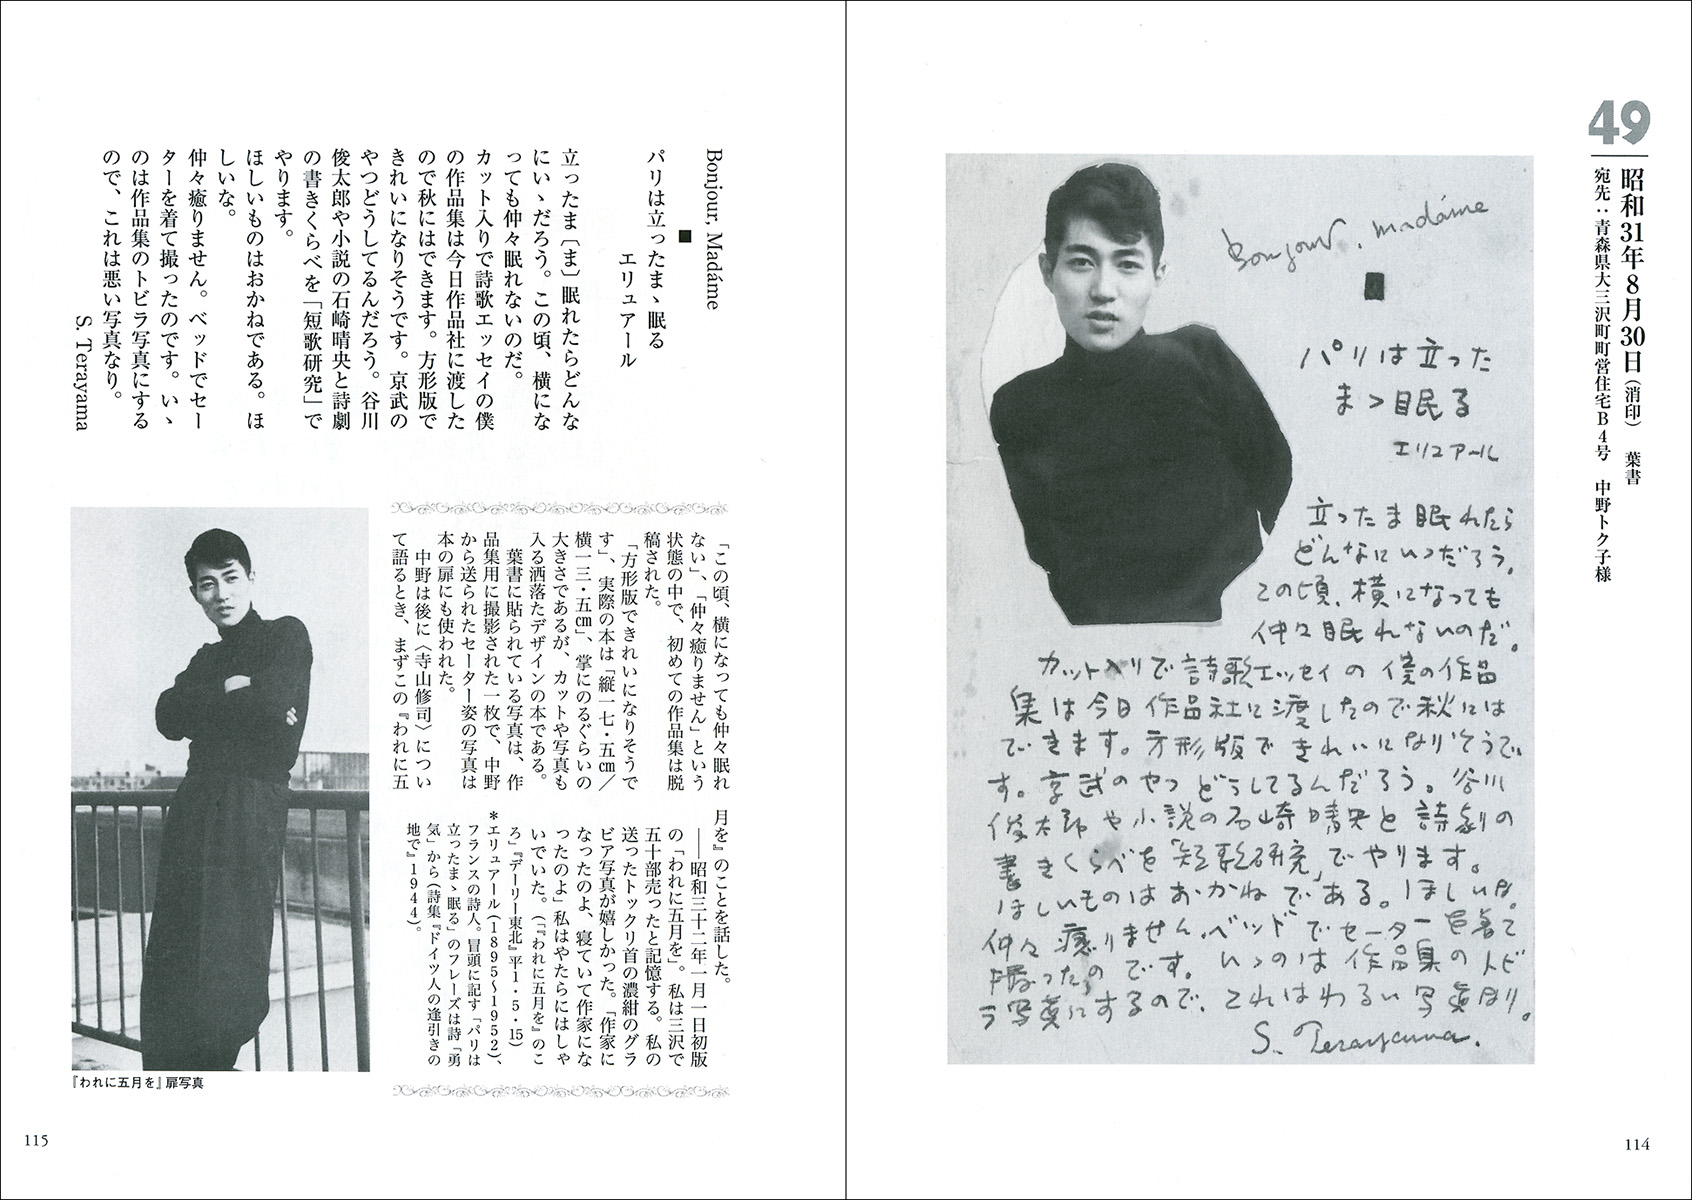 49
昭和31年8月30日（消印）　葉書
宛先：青森県大三沢町町営住宅B4号　中野トク子様
Bonjour, Madáme
■
パリは立った
まゝ眠る
エリュアール
立ったま眠れたら
どんなにいゝだろう。
この頃、横になっても
仲々眠れないのだ。
カット入りで詩歌エッセイの僕の作品
集は今日作品社に渡したので秋には
できます。方形版できれいになりそうで
す。京武のやつどうしてるんだろう。谷川
俊太郎や小説の石崎晴央と詩劇の
書きくらべを「短歌研究」でやります。
ほしいものはおかねである。ほしいな。
仲々癒りません。ベッドでセーターを着て
撮ったのです。いゝのは作品集のトビ
ラ写真にするので、これはわるい写真なり。
S. Terayama.
114
Bonjour, Madáme
■
パリは立ったまゝ眠る
エリュアール
立ったま〔ま〕眠れたらどんな
にいゝだろう。この頃、横にな
っても仲々眠れないのだ。
カット入りで詩歌エッセイの僕
の作品集は今日作品社に渡した
ので秋にはできます。方形版で
きれいになりそうです。京武の
やつどうしてるんだろう。谷川
俊太郎や小説の石崎晴央と詩劇
の書きくらべを「短歌研究」で
やります。
ほしいものはおかねである。ほ
しいな。
仲々癒りません。ベッドでセー
ターを着て撮ったのです。いゝ
のは作品集のトビラ写真にする
ので、これは悪い写真なり。
S. Terayama
「この頃、横になっても仲々眠れ
ない」、「仲々癒りません」という
状態の中で、初めての作品集は脱
稿された。
「方形版できれいになりそうで
す」、実際の本は「縦一七・五㎝／
横一三・五㎝」、掌にのるぐらいの
大きさであるが、カットや写真も
入る洒落たデザインの本である。
葉書に貼られている写真は、作
品集用に撮影された一枚で、中野
から送られたセーター姿の写真は
本の扉にも使われた。
中野は後に〈寺山修司〉につい
て語るとき、まずこの『われに五
月を』のことを話した。
――昭和三十二年一月一日初版
の「われに五月を」。私は三沢で
五十部売ったと記憶する。私の
送ったトックリ首の濃紺のグラ
ビア写真が嬉しかった。「作家に
なったのよ、寝ていて作家にな
ったのよ」私はやたらにはしゃ
いでいた。（「『われに五月を』のこ
ろ」『デーリー東北』平1・5・15）
＊エリュアール（1895〜1952）、
フランスの詩人。冒頭に記す「パリは
立ったまゝ眠る」のフレーズは詩「勇
気」から（詩集『ドイツ人の逢引きの
地で』1944）。
『われに五月を』扉写真
115